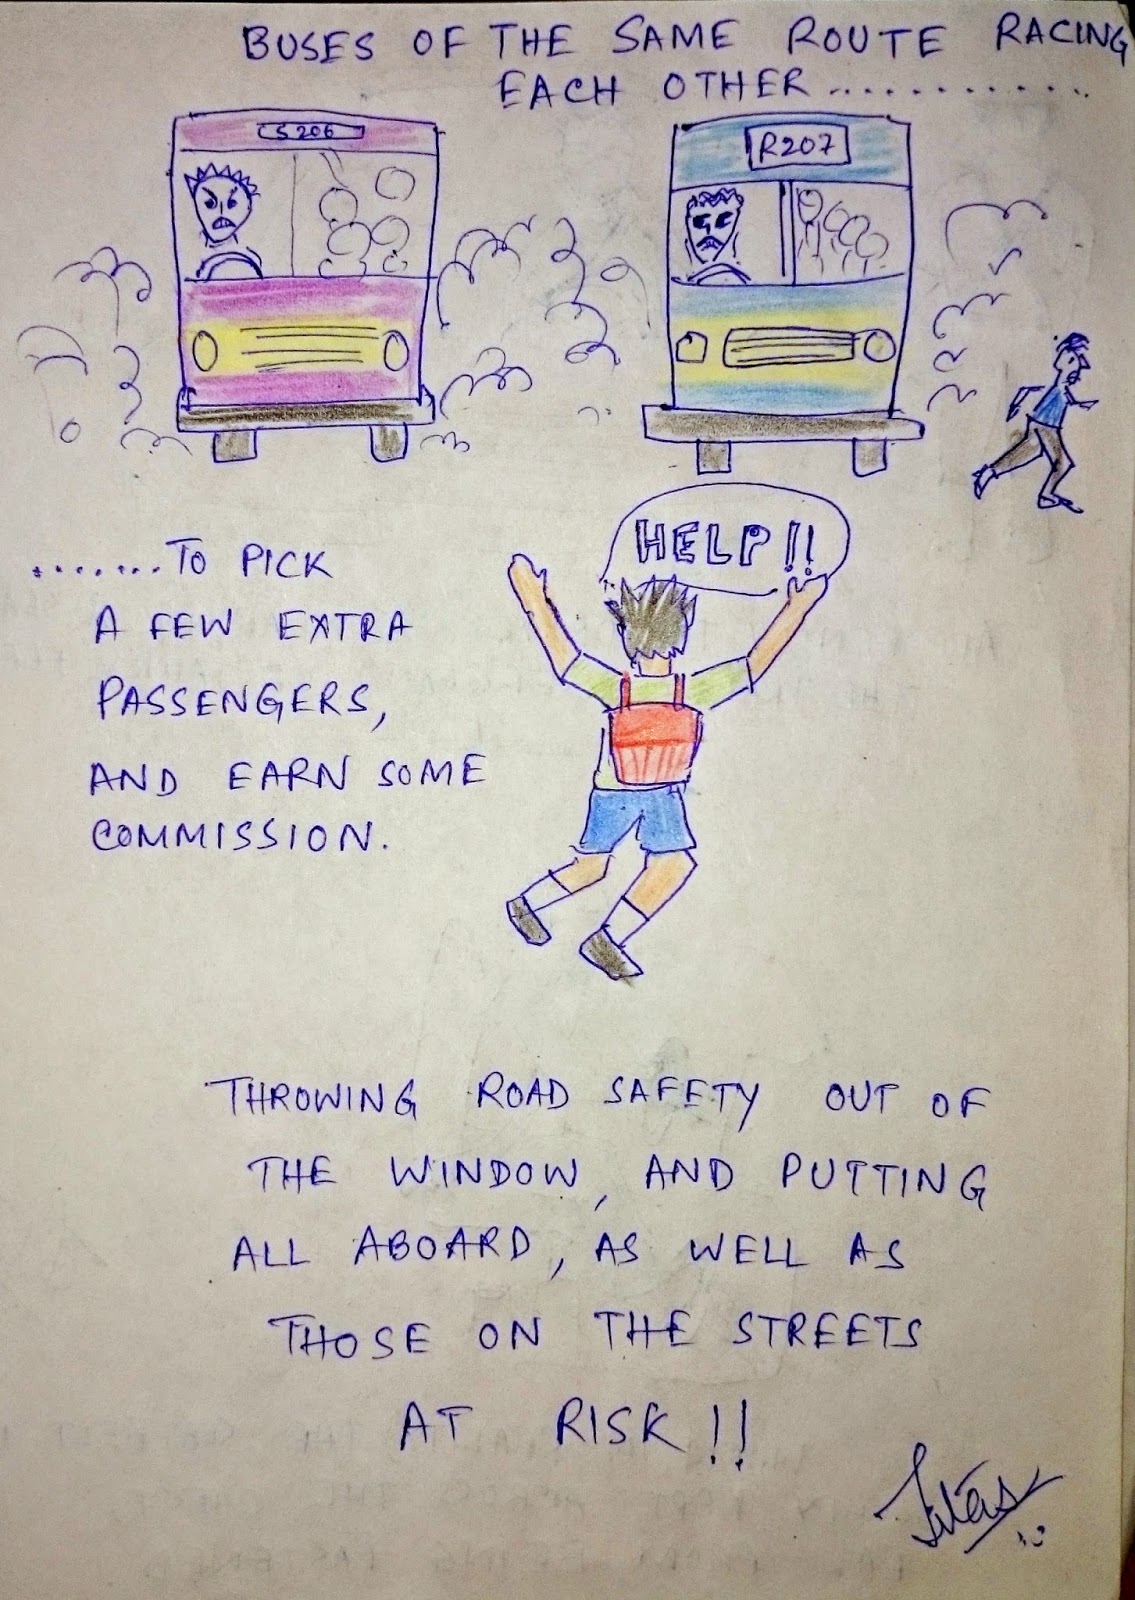 BUSES OF THE SAME ROUTE RACING
EACH OTHER............
S206
R207
HELP!!
.......TO PICK
A FEW EXTRA
PASSENGERS,
AND EARN SOME
COMMISSION.
THROWING ROAD SAFETY OUT OF
THE WINDOW, AND PUTTING
ALL ABOARD, AS WELL AS
THOSE ON THE STREETS
AT RISK!!